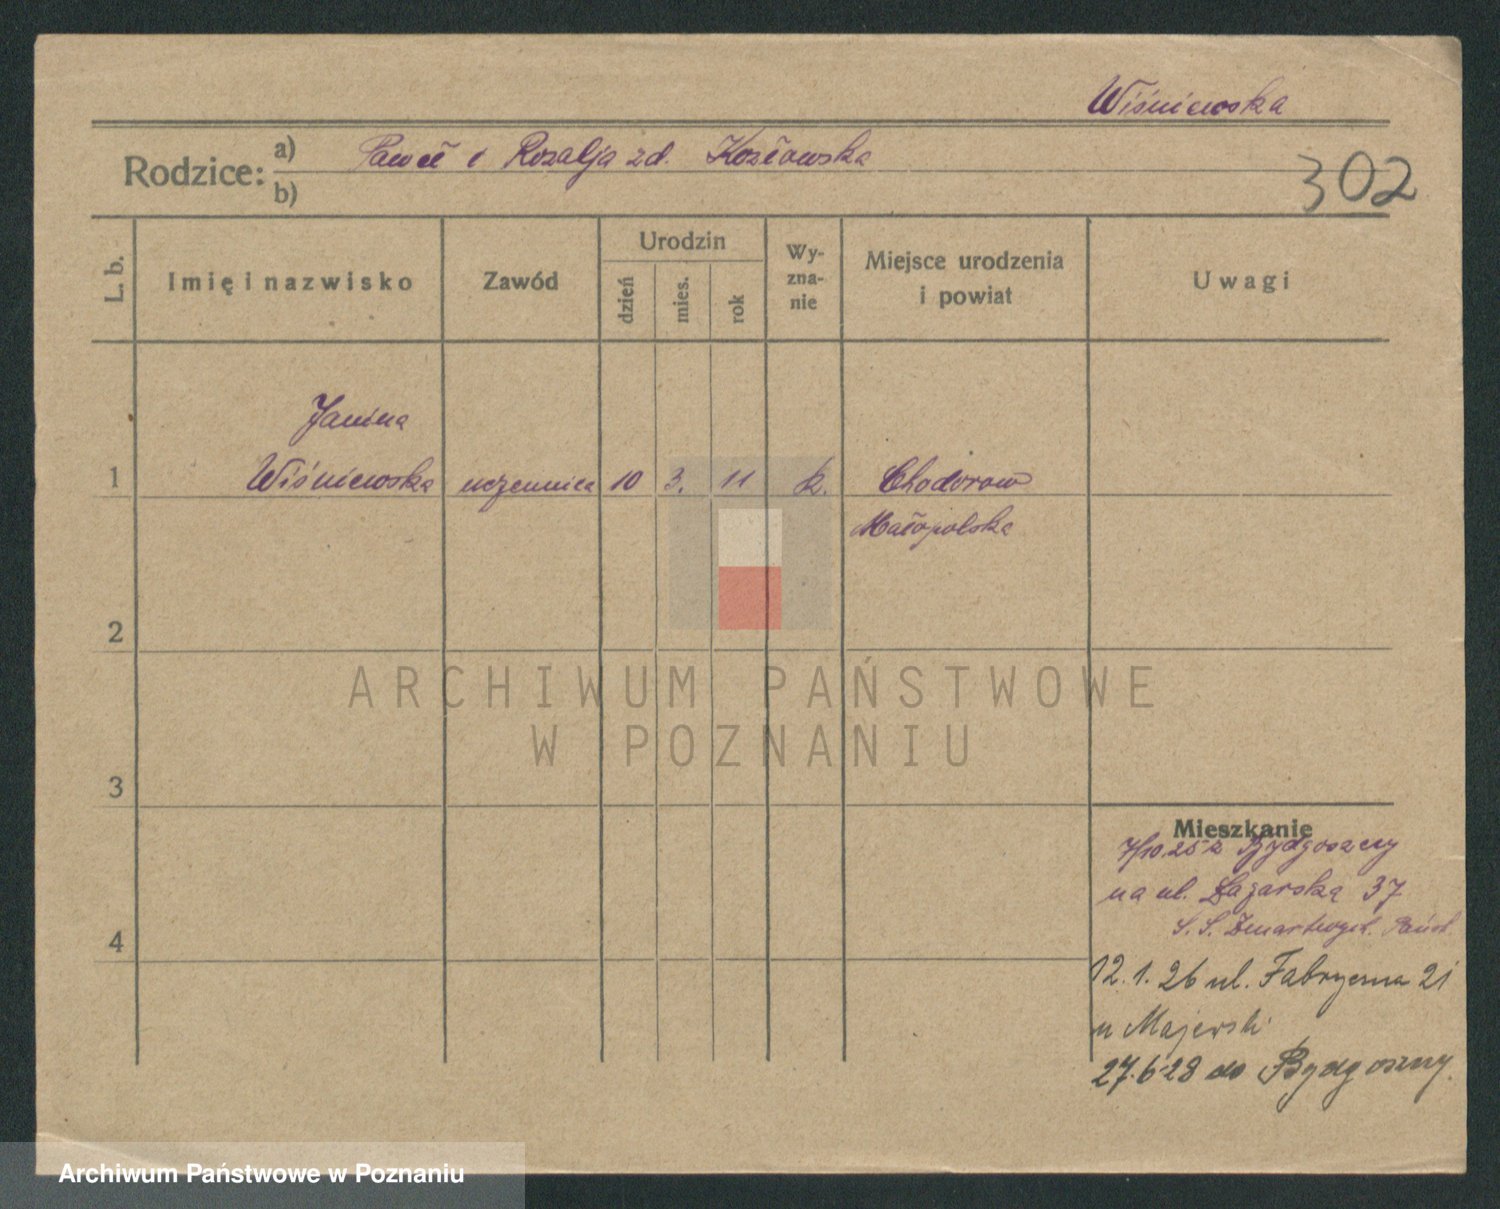 Wiśniewska
Rodzice: a) Paweł i Rozalja zd. Kozłowska
b)
302
L. b.
Imię i nazwisko
Zawód
Urodzin
dzień
mies.
rok
Wy-
zna-
nie
Miejsce urodzenia
i powiat
Uwagi
Janina
1 Wiśniewska uczennica 10 3. 11 k. Chodorow
Małopolska
2
3
4
Mieszkanie
7/10.25 z Bydgoszczy
na ul. Łazarską 37
S. S. Zmartwych. Pańsk.
12.1.26 ul. Fabryczna 21
u Majerski
27.6.28 do Bydgoszczy.
ARCHIWUM PAŃSTWOWE
W POZNANIU
Archiwum Państwowe w Poznaniu